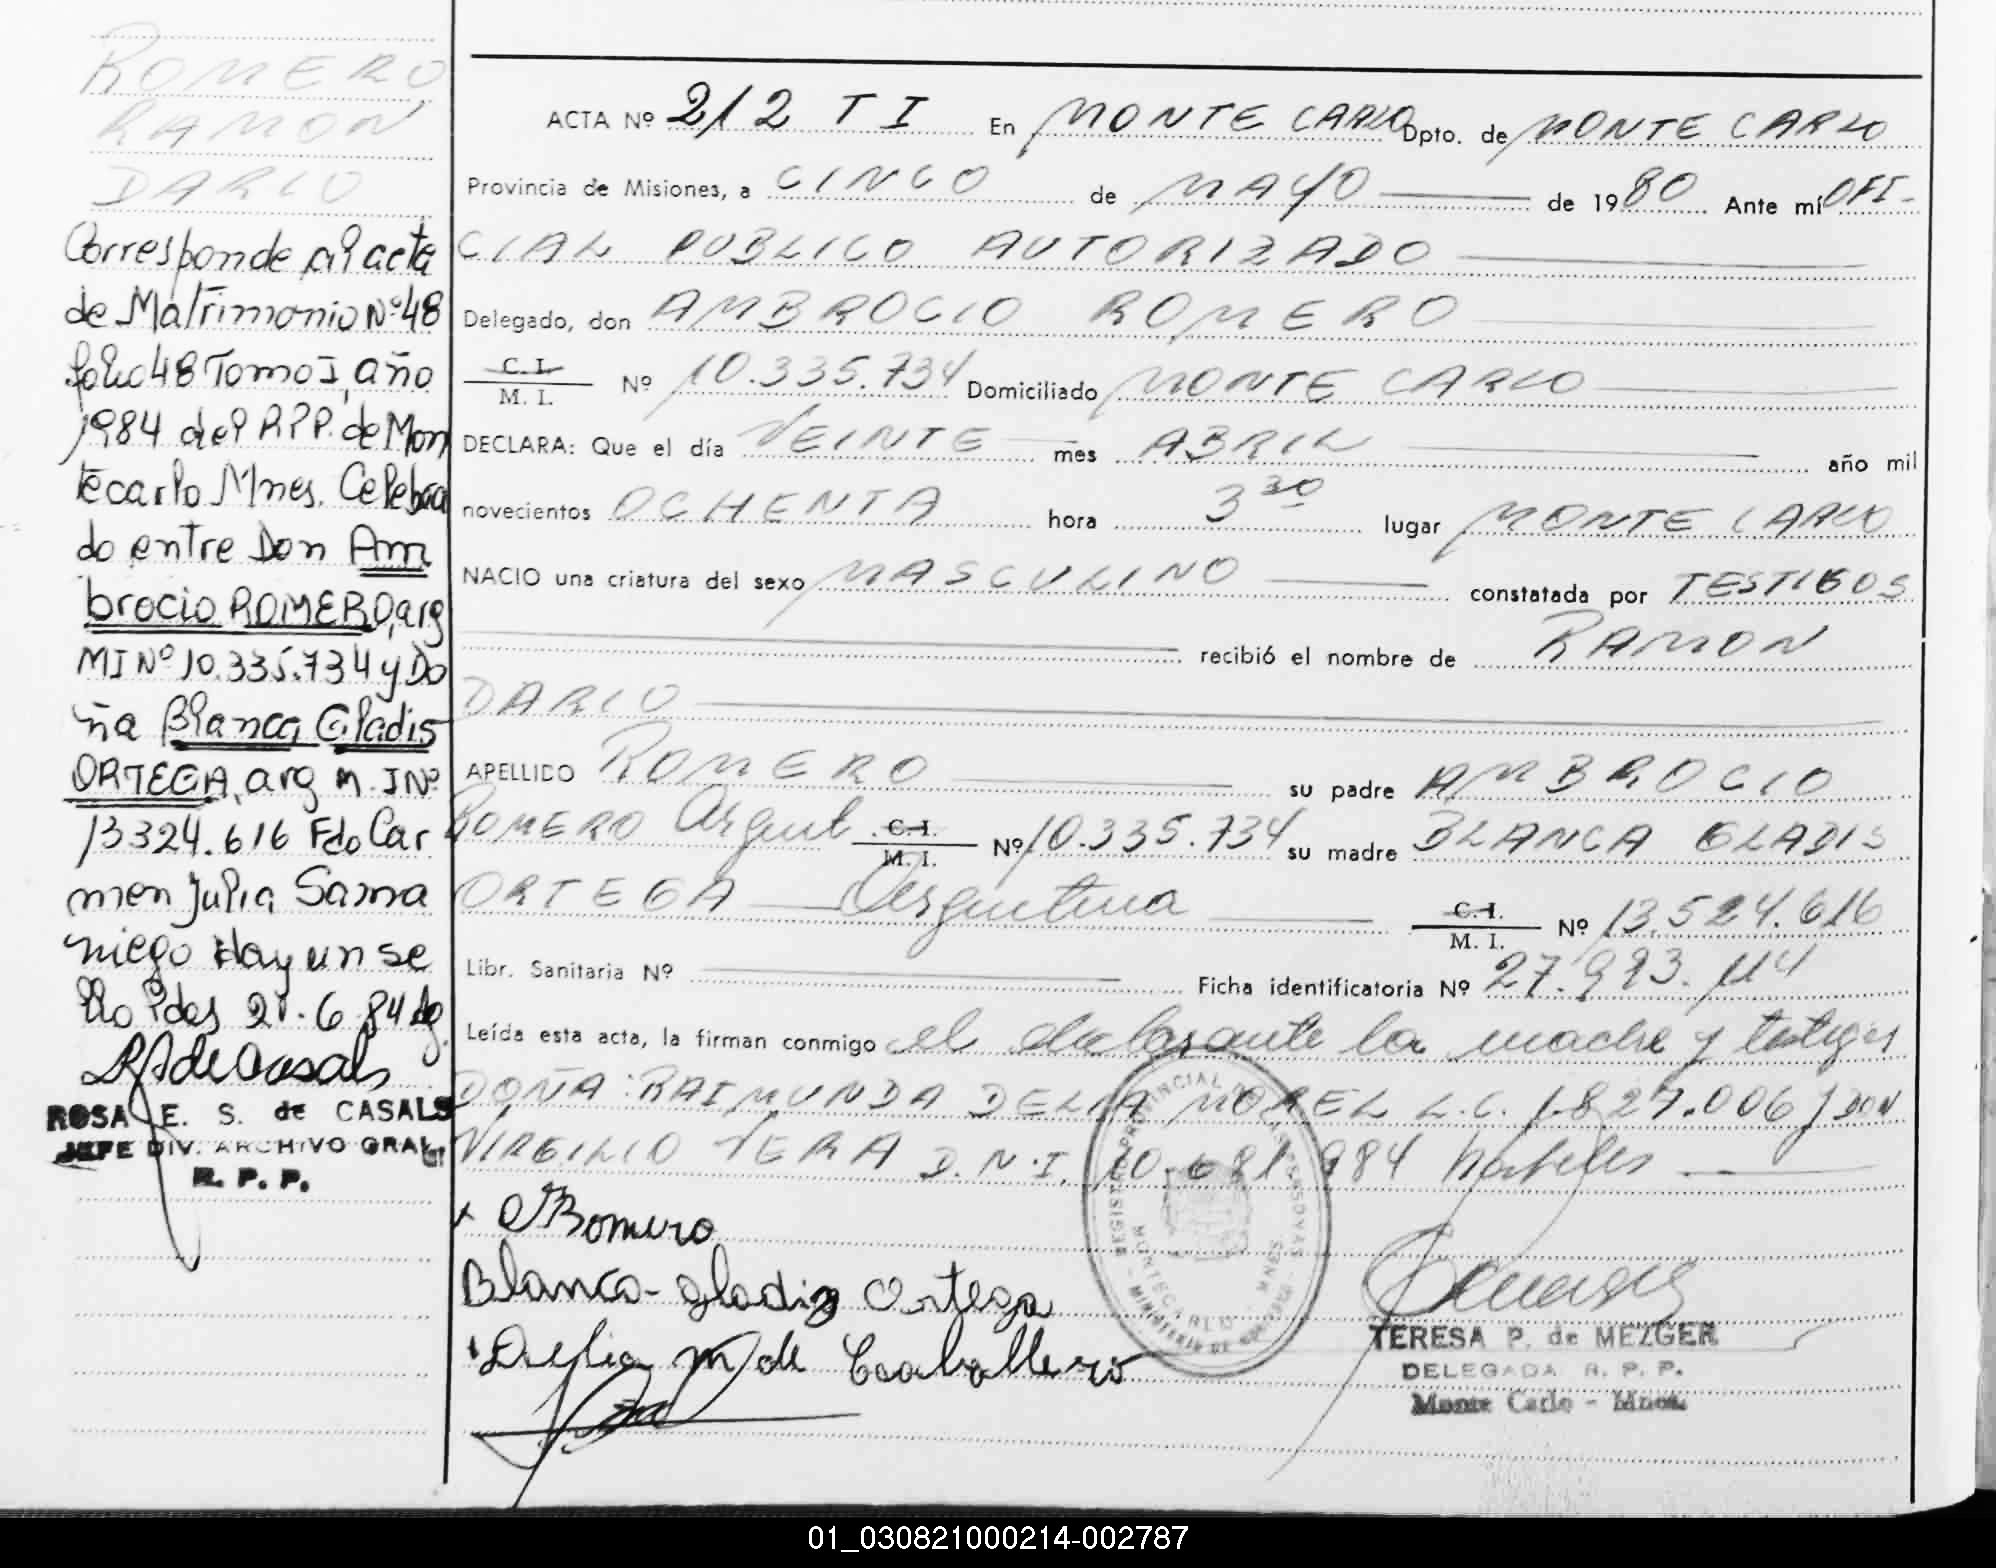 ROMERO
RAMON
DARIO
Corresponde al acta
de Matrimonio Nº48
folio 48 Tomo I, año
1984 del R.P.P. de Mon
tecarlo Mnes. Celebra
do entre Don Am
brocio ROMERO, arg
MI Nº 10.335.734 y Do
ña Blanca Gladis
ORTEGA, arg M.I Nº
13324.616 Fdo Car
men Julia Sama
niego Hay un se
llo Pdas 21.6.84
ROSA E. S. de CASALS
JEFE DIV. ARCHIVO GRAL.
R. P. P.
ACTA Nº 212 T I En MONTE CARLO Dpto. de MONTE CARLO
Provincia de Misiones, a CINCO de MAYO de 1980 Ante mí OFI-
CIAL PUBLICO AUTORIZADO
Delegado, don AMBROCIO ROMERO
C. I.
M. I. Nº 10.335.734 Domiciliado MONTE CARLO
DECLARA: Que el día VEINTE mes ABRIL año mil
novecientos OCHENTA hora 3 30 lugar MONTE CARLO
NACIO una criatura del sexo MASCULINO constatada por TESTIGOS
recibió el nombre de RAMON
DARIO
APELLIDO ROMERO su padre AMBROCIO
ROMERO Argent C.I. M. I. Nº 10.335.734 su madre BLANCA GLADIS
ORTEGA Argentina C.I. M. I. Nº 13.524.616
Libr. Sanitaria Nº Ficha identificatoria Nº 27.993.114
Leída esta acta, la firman conmigo el declarante la madre y testigos
DOÑA: RAIMUNDA DELIA MOREL L.C. 1.827.006 y DON
VIRGILIO VERA D.N.I. 10.681.984 habiles
Romero
Blanca gladis Ortega
Delia M de Caballero
REGISTRO PROVINCIAL DE LAS PERSONAS
MONTECARLO - MNES.
MINISTERIO DE GOBIERNO
TERESA P. de MEZGER
DELEGADA R. P. P.
Monte Carlo - Mnes.
01_030821000214-002787